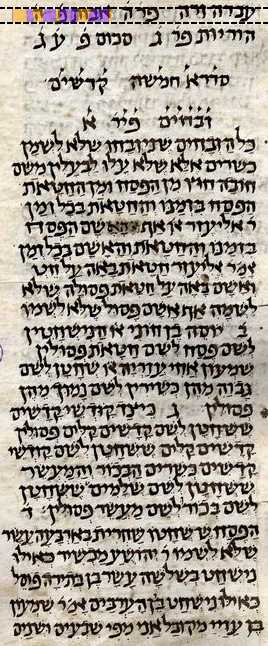 הוריות פר ג סכום פ ע ג
סדרא חמשה קדשים
זבחים פיר א
כל הזבחים שניזבחו שלא לשמן
כשרים אלא שלא עלו לבעלין משם
חובה חוץ מן הפסח ומן החטאת
הפסח בזמנו והחטאת בכל זמן
ר אליעזר או אף האשם הפסח
בזמנו והחטאת והאשם בכל זמן
אמ׳ ר אליעזר חטאת באה על חט
ואשם בא על חטאת פסולה שלא
לשמה אף אשם פסול שלא לשמו
ב יוסה בן חוני או הנישחטין
לשם פסח לשם חטאת פסולין
שמעון אחי עזריה או שחטן לשם
גבוה מהן כשירין לשם נמוך מהן
פסולין ג כיצד קודשי קדשים
ששחטן לשם קדשים קלים פסולין
קדשים קלים ששחטן לשם קודשי
קדשים כשרים הבכור והמעשר
ששחטן לשם שלמים ששחטן
לשם בכור לשם מעשר פסולין ד
הפסח ששחטו שחרית בארבעה עשר
שלא לשמו ר יהושע מכשיר כאילו
נישחט בשלשה עשר בן בתירה פוסל
כאילו נישחט בין הערבים אמ׳ שמעון
בן עזיי מקובל אני מפי שבעים ושנים